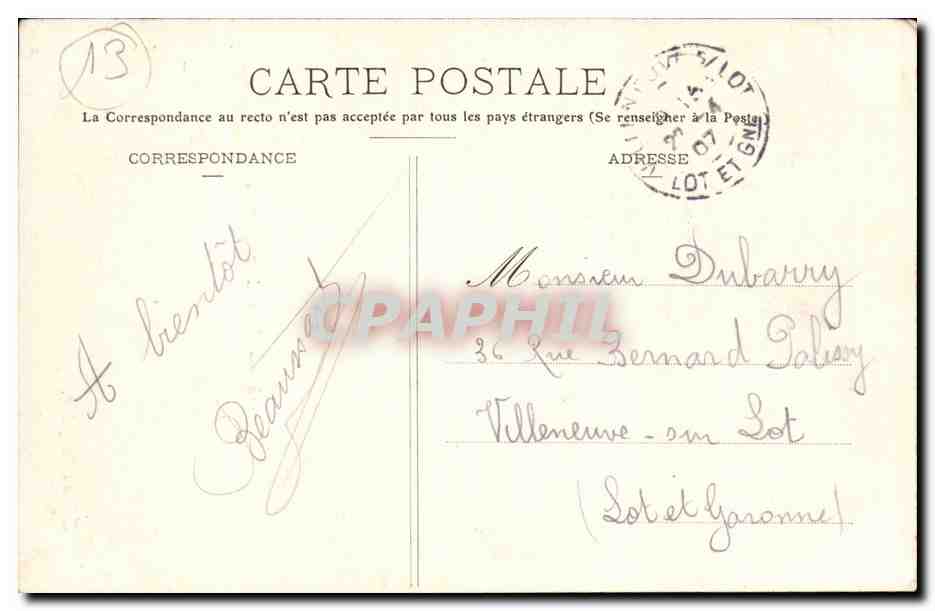 13
CARTE POSTALE
La Correspondance au recto n'est pas acceptée par tous les pays étrangers (Se renseigner à la Poste)
CORRESPONDANCE
ADRESSE
S/LOT
LOT ET GNE
07
A bientôt
Monsieur Dubarry
36 Rue Bernard Palissy
Villeneuve-sur Lot
(Lot et Garonne)
CPAPHIL